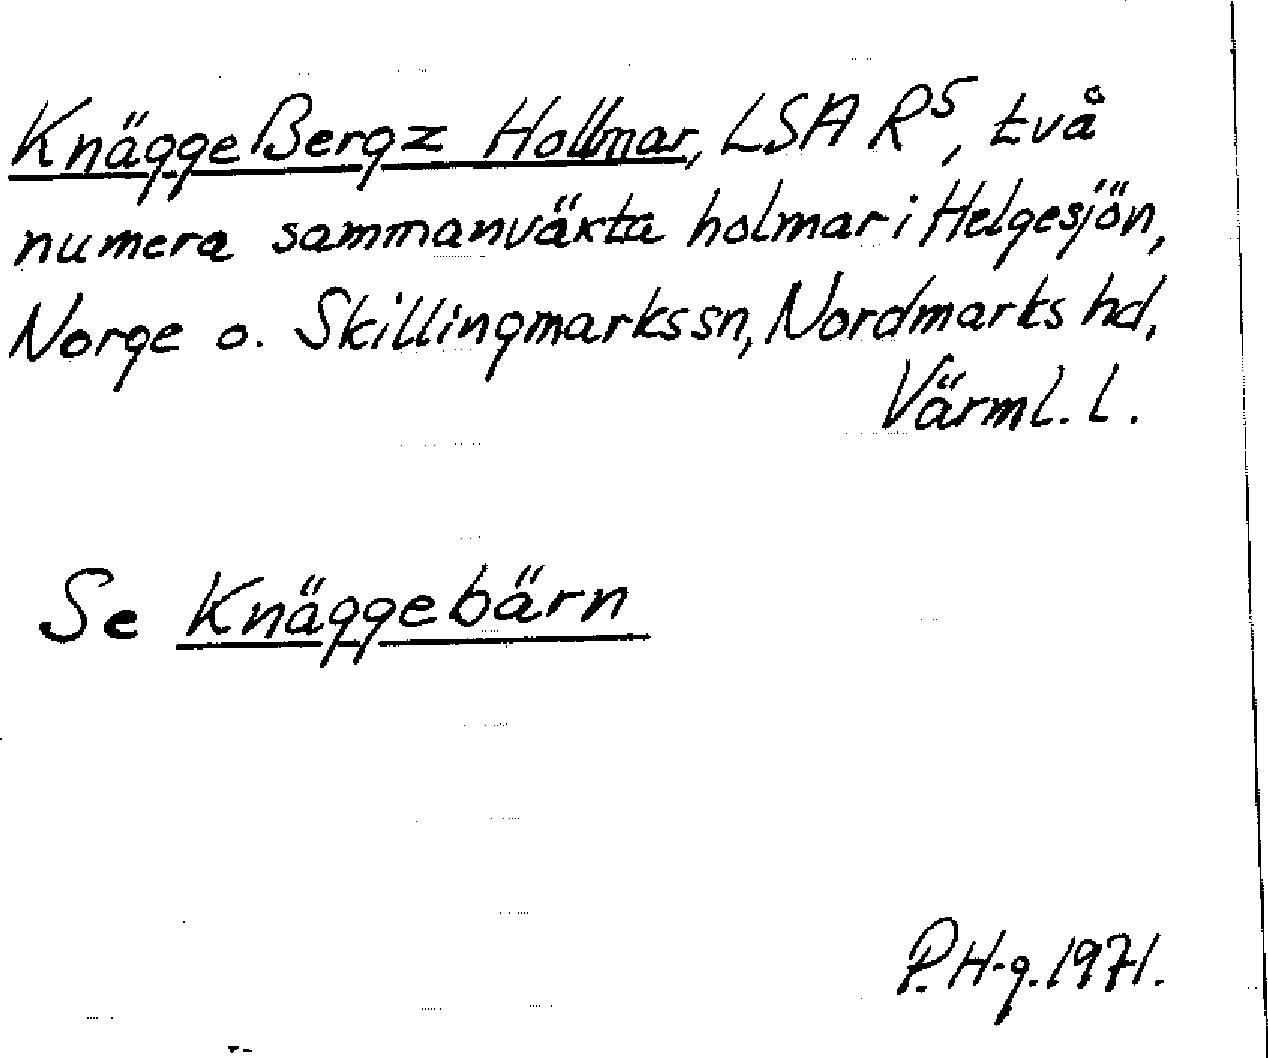 Knägge Bergz Hollmar, LSA R5, två
numera sammanväxta holmar i Helgesjön,
Norge o. Skillingmarks sn, Nordmarks hd,
Värml. l.
Se Knäggebärn
P. H-g. 1971.